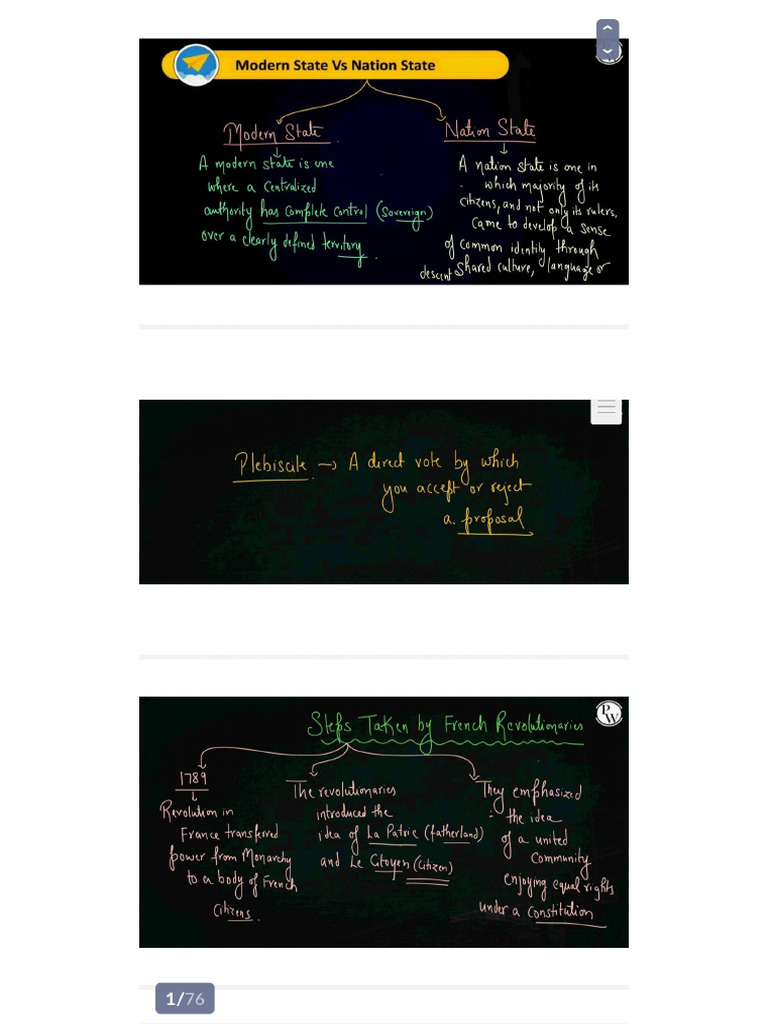 Modern State Vs Nation State
Modern State
A modern state is one
where a centralized
authority has complete control (Sovereign)
over a clearly defined territory.
Nation State
A nation state is one in
which majority of its
citizens, and not only its rulers,
came to develop a sense
of common identity through
shared culture, language or
descent
Plebiscite → A direct vote by which
you accept or reject
a proposal
PW
Steps Taken by French Revolutionaries
1789
Revolution in
France transferred
power from Monarchy
to a body of French
Citizens.
The revolutionaries
introduced the
idea of La Patrie (fatherland)
and Le Citoyen (Citizen)
They emphasized
the idea
of a united
community
enjoying equal rights
under a constitution
1/76